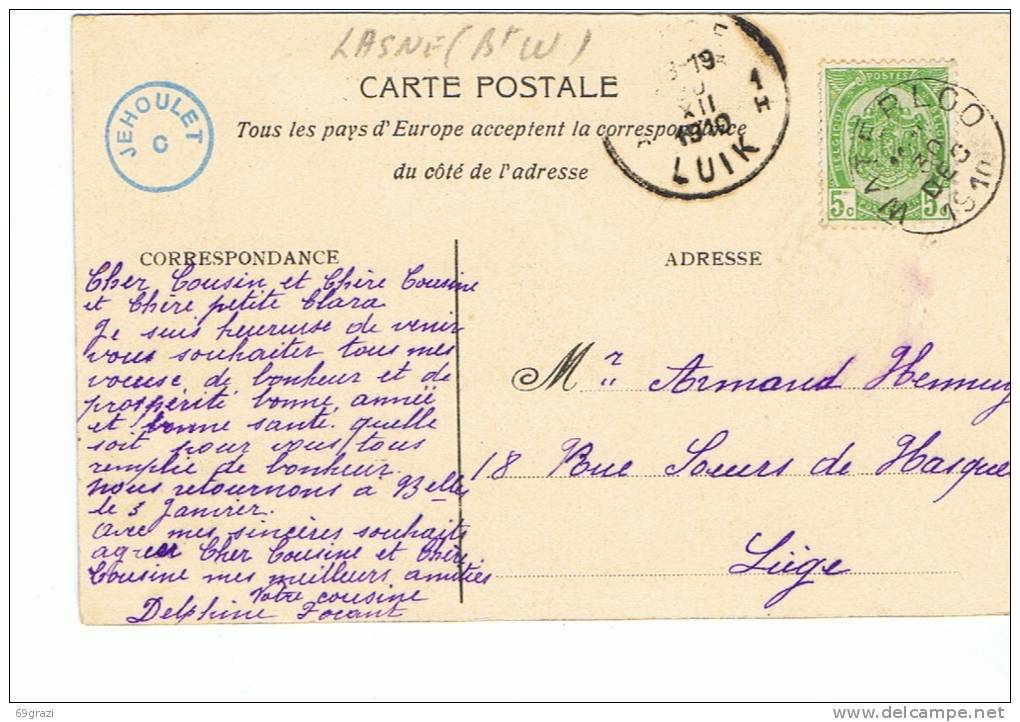 LASNE (Bt W)
CARTE POSTALE
Tous les pays d'Europe acceptent la correspondance
du côté de l'adresse
JEHOULET
C
1910
LUIK
1
H
XII
POSTES
5c
WATERLOO
30
DEC
1910
CORRESPONDANCE
Cher Cousin et Chère Cousine
et Chère petite Clara
Je suis heureuse de venir
vous souhaiter tous mes
voeuse de bonheur et de
prospérité bonne année
et bonne santé. quelle
soit pour vous tous
remplie de bonheur.
nous retournons à Belles
le 3 Janvier.
avec mes sincères souhaits
agréer Cher Cousine et Chère
Cousine mes meilleurs amitiés
Votre cousine
Delphine Focant
ADRESSE
Mr Armand Hennuy
18 Rue Soeurs de Hasque
Liège
69grazi
www.delcampe.net